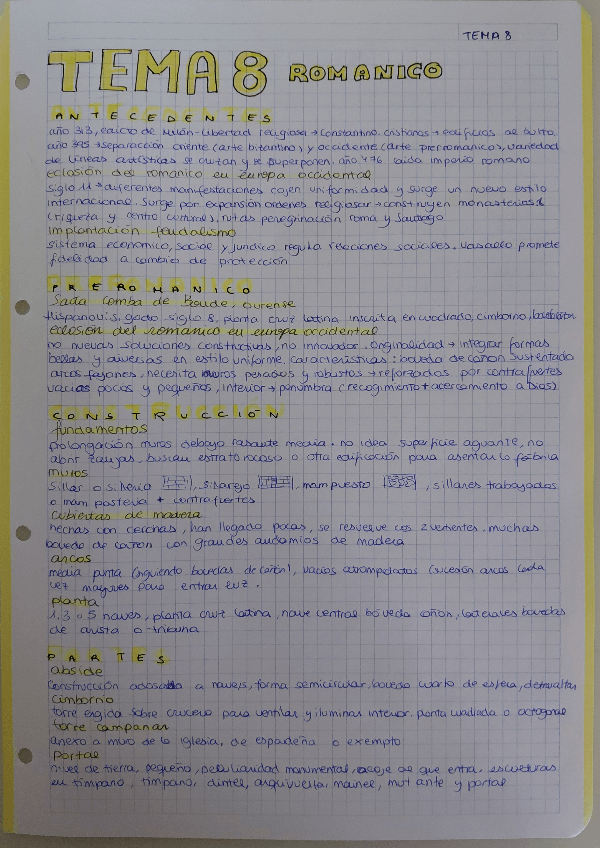 TEMA 8
TEMA 8 ROMANICO
ANTECEDENTES
año 313, edicto de Milón-libertad religiosa → Constantino. cristianos → edificios de culto
año 395 → separación oriente (arte bizantino) y occidente (arte prerromanico), variedad
de lineas artísticas se cruzan y se superponen. año 476 caída imperio romano
eclosión del romanico en europa occidental
siglo 11 → diferentes manifestaciones cojen uniformidad y surge un nuevo estilo
internacional. Surge por expansión ordenes religiosas → construyen monasterios
(riqueza y centro cultural), rutas peregrinación roma y Santiago
implantación feudalismo
sistema economico, social y jurídico regula relaciones sociales. Vasallo promete
fidelidad a cambio de protección
PREROMANICO
Santa Comba de Bande, ourense
Hispanovis, godo siglo 8, planta cruz latina inscrita en cuadrado, cimborrio,
eclosión del romanico en europa occidental
no nuevas soluciones constructivas, no innovador. Originalidad → integrar formas
bellas y diversas en estilo uniforme, características: boveda de cañon sustentada
arcos fajones, necesita muros pesados y robustos → reforzados por contrafuertes
vacios pocos y pequeños, interior → penumbra (recogimiento + acercamiento a Dios)
CONSTRUCCIÓN
fundamentos
prolongación muros debajo rasante media. no idea superficie aguante, no
abrir zanjas, buscan estrato rocoso o otra edificación para asentar la fabrica
muros
sillar o silleria, sillarejo, mampuesto, sillares trabajados
o mamposteria + contrafuertes
cubiertas de madera
hechas con cerchas, han llegado pocas, se resuelve cos 2 vertientes. muchas
boveda de cañon con grandes andamios de madera
arcos
media punta (siguiendo bovedas de cañon), vacios abocinados (sucesión arcos cada
vez mayores para entrar luz.
planta
1, 3 o 5 naves, planta cruz latina, nave central boveda cañon, laterales bovedas
de arista o tribuna
PARTES
abside
construcción adosada a naves, forma semicircular, boveda cuarto de esfera,
Cimborrio
torre erigida sobre crucero para ventilar y iluminar interior. planta cuadrada o octogonal
torre campanar
anexo a muro de la iglesia, de espadeña o exempto
Portal
nivel de tierra, pequeño, peculiaridad monumental, acoje al que entra. esculturas
en timpano, timpano, dintel, arquivuelta, mainel, muntante y portal